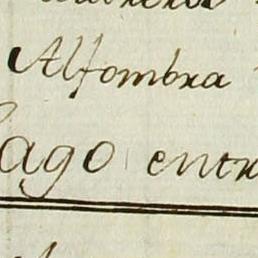 Alfombra
ago entr